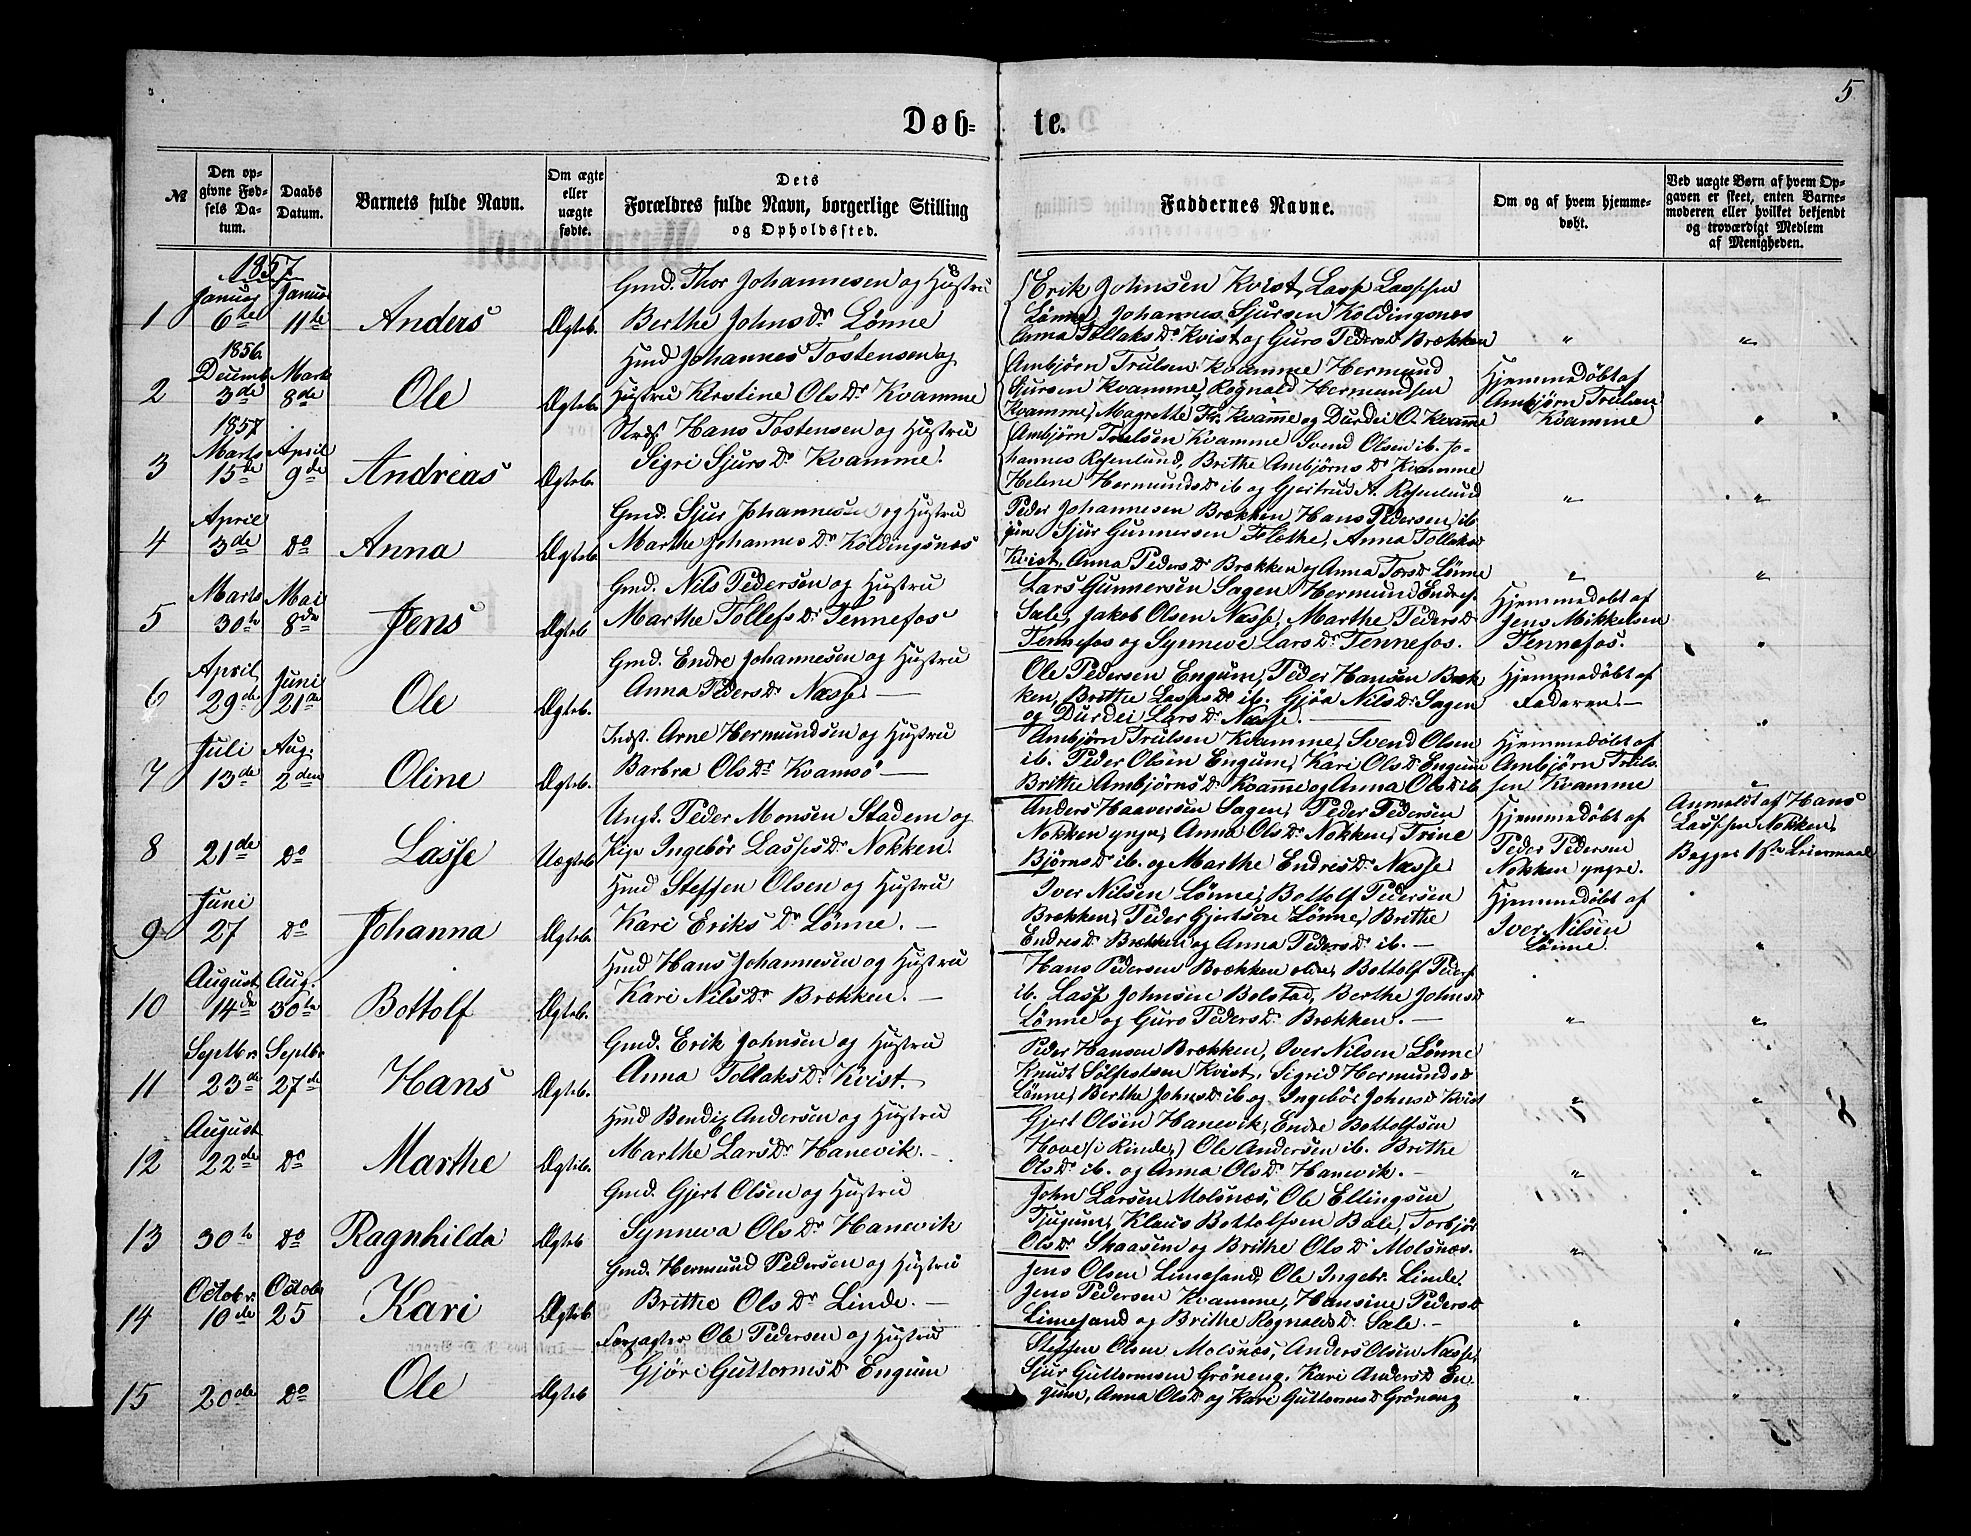 5
Døb-
te.
№
Den op-
givne Fød-
sels Da-
tum.
Daabs
Datum.
Barnets fulde Navn.
Om ægte
eller
uægte
fødte.
Dets
Forældres fulde Navn, borgerlige Stilling
og Opholdssted.
Faddernes Navne.
Om og af hvem hjemme-
døbt.
Ved uægte Børn af hvem Op-
gaven er skeet, enten Barne-
moderen eller hvilket bekjendt
og troværdigt Medlem
af Menigheden.
1857
1
Januar
6te
Januar
11te
Anders
Ægteb.
Gmd. Thor Johannesen og Hustru
Berthe Johns Dr Lønne
Erik Johnsen Kvist, Lasse Lassesen
Lønne, Johannes Sjursen Koldingsnes
Anna Tollaks Dr Kvist og Guro Peders D Brækken
"
"
1856.
2
Decemb.
3de
Marts
8de
Ole
Ægteb.
Hmd Johannes Tostensen og
Hustru Kirstine Ols Dr Kvamme
Ambjørn Trulsen Kvamme, Hermund
Sjursen Kvamme, Rognald Hermundsen
Kvamme, Magrethe Fr. Kvamme og Durdei O. Kvamme
Hjemmedøbt af
Ambjørn Trulsen
Kvamme
"
"
1857
3
Marts
15de
April
9de
Andreas
Ægteb.
Hans Tostensen og Hustru
Sigri Sjurs Dr Kvamme.
Ambjørn Trulsen Kvamme, Svend Olsen ib. Jo-
hannes Rosenlund, Brithe Ambjørns Dr Kvamme
Helene Hermunds Dr ib og Gjertrud A. Rosenlund
"
"
4
April
3de
do
Anna
Ægteb.
Gmd. Sjur Johannesen og Hustru
Marthe Johannes Dr Koldingsnæs
Peder Johannesen Brækken, Hans Pedersen ib.
jun Sjur Gunnersen Flethe, Anna Tollaks
Kvist, Anna Peders Dr Brækken og Anna Tors Dr Lønne
"
"
5
Marts
30te
Mai
8de
Jens
Ægteb
Gmd. Nils Pedersen og Hustru
Marthe Tollefs Dr Tennefos
Lars Gunnersen Sagen, Hermund Endres.
Sale, Jakob Olsen Næsse, Marthe Peders Dr
Tennefos og Synneve Lars Dr Tennefos.
Hjemmedøbt af
Jens Mikkelsen
Tennefos.
"
6
April
29de
Juni
21de
Ole
Ægteb.
Gmd. Endre Johannesen og Hustru
Anna Peders Dr Næsse. —
Ole Pedersen Engum, Peder Hansen Bræk-
ken, Brithe Lasses Dr ib. Gjøa Nils Dr Sagen
og Durdei Lars Dr Næsse. —
Hjemmedøbt af
Faderen. —
"
7
Juli
13de
Aug.
2den
Oline
Ægteb.
Indst. Arne Hermundsen og Hustru
Barbra Ols Dr Kvamsø —
Ambjørn Trulsen Kvamme, Svend Olsen
ib. Peder Olsen Engum, Kari Ols D Engum
Brithe Ambjørns Dr Kvamme og Anna Ols D ib
Hjemmedøbt af
Ambjørn Trul-
sen Kvamme
"
8
21de
do
Lasse
Uægteb
Ungk. Peder Monsen Stadem og
Pige Ingebør Lasses Dr Nokken.
Anders Haaversen Sagen, Peder Pedersen
Nokken yngre, Anna Ols Dr Nokken, Trine
Bjørns Dr ib. og Marthe Endres Dr Næsse
Hjemmedøbt af
Peder Pedersen
Nokken yngre.
Anmeldt af Hans
Lassesen Nokken,
Begges 1ste Leiermaal
9
Juni
27
do
Johanna
Ægteb.
Hmd Steffen Olsen og Hustru
Kari Eriks Dr Lønne. —
Iver Nilsen Lønne, Bottolf Pedersen
Brækken, Peder Gjertsen Lønne, Brithe
Endres Dr Brækken og Anna Peders Dr ib. —
Hjemmedøbt af
Iver Nilsen
Lønne.
"
10
August
14de
Aug.
30te
Bottolf
Ægteb.
Hmd Hans Johannesen og Hustru
Kari Nils Dr Brækken. —
Hans Pedersen Brækken eldre, Bottolf Peders.
ib. Lasse Johnsen Bolstad, Berthe Johns D
Lønne og Guro Peders Dr Brækken. —
"
"
11
Septbr.
23de
Septbr.
27de
Hans
Ægteb.
Gmd. Erik Johnsen og Hustru
Anna Tollaks Dr Kvist.
Peder Hansen Brækken, Iver Nilsen Lønne
Knudt Kvist, Sigrid Hermunds D
Lønne, Berthe Johns Dr ib og Ingebør Johns D Kvist
"
"
12
August
22de
do
Marthe
Ægteb.
Hmd Bendix Andersen og Hustru
Marthe Lars Dr Hanevik. —
Gjert Olsen Hanevik, Endre Bottolfsen
Hove (i Rinde,) Ole Andersen ib. Brithe
Ols Dr ib. og Anna Ols Dr Hanevik. —
"
"
13
30te
do
Ragnhilda
Ægteb
Gmd. Gjert Olsen og Hustru
Synneva Ols Dr Hanevik
John Larsen Molsnæs, Ole Ellingsen
Tjugum, Klaus Bottolfsen Bale, Torbjør
Ols Dr Skaasem og Brithe Ols D Molsnæs.
"
"
14
Octobr.
10de
Octobr
25
Kari
Ægteb
Gmd. Hermund Pedersen og Hustru
Brithe Ols Dr Linde. —
Jens Olsen Limesand, Ole Ingebr. Linde.
Jens Pedersen Kvamme, Hansine Peders D
Limesand og Brithe Rognalds Dr Sale. —
"
"
15
20de
do
Ole
Ægteb
Forpagter Ole Pedersen og Hustru
Gjøri Guttorms Dr Engum
Steffen Olsen Molsnæs, Anders Olsen Næsse,
Sjur Guttormsen Grøneng, Kari Anders D En-
gum, Anna Ols D og Kari Guttorms D Grøneng
"
"